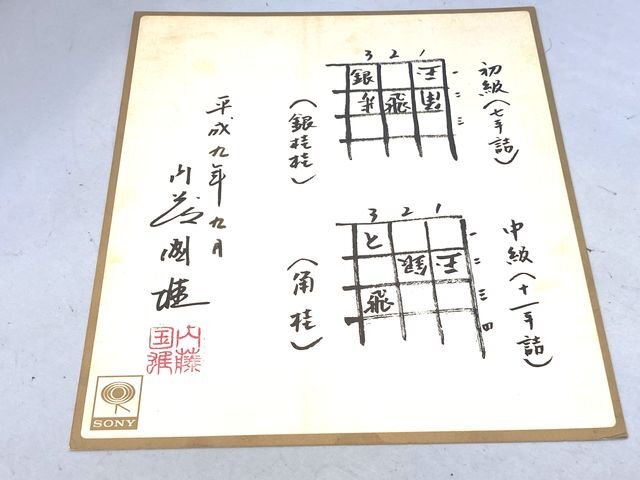 初級(七手詰)
3 2 1
一
二
三
銀 玉
飛
(銀桂桂)
中級(十一手詰)
3 2 1
一
二
三
四
と
銀 玉
飛
(角桂)
平成九年九月
内藤國雄
内藤
国雄
SONY